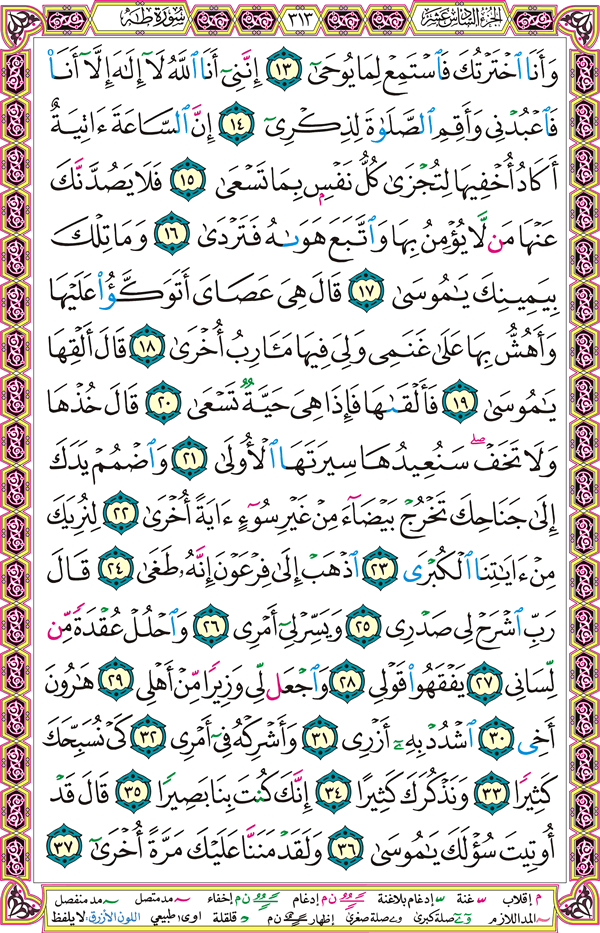 الجزء السادس عشر ٣١٣ سورة طه
وَأَنَا ٱخْتَرْتُكَ فَٱسْتَمِعْ لِمَا يُوحَىٰٓ ١٣ إِنَّنِىٓ أَنَا ٱللَّهُ لَآ إِلَٰهَ إِلَّآ أَنَا۠
فَٱعْبُدْنِى وَأَقِمِ ٱلصَّلَوٰةَ لِذِكْرِىٓ ١٤ إِنَّ ٱلسَّاعَةَ ءَاتِيَةٌ
أَكَادُ أُخْفِيهَا لِتُجْزَىٰ كُلُّ نَفْسٍۭ بِمَا تَسْعَىٰ ١٥ فَلَا يَصُدَّنَّكَ
عَنْهَا مَن لَّا يُؤْمِنُ بِهَا وَٱتَّبَعَ هَوَىٰهُ فَتَرْدَىٰ ١٦ وَمَا تِلْكَ
بِيَمِينِكَ يَٰمُوسَىٰ ١٧ قَالَ هِىَ عَصَاىَ أَتَوَكَّؤُا۟ عَلَيْهَا
وَأَهُشُّ بِهَا عَلَىٰ غَنَمِى وَلِىَ فِيهَا مَـَٔارِبُ أُخْرَىٰ ١٨ قَالَ أَلْقِهَا
يَٰمُوسَىٰ ١٩ فَأَلْقَىٰهَا فَإِذَا هِىَ حَيَّةٌ تَسْعَىٰ ٢٠ قَالَ خُذْهَا
وَلَا تَخَفْ ۖ سَنُعِيدُهَا سِيرَتَهَا ٱلْأُولَىٰ ٢١ وَٱضْمُمْ يَدَكَ
إِلَىٰ جَنَاحِكَ تَخْرُجْ بَيْضَآءَ مِنْ غَيْرِ سُوٓءٍ ءَايَةً أُخْرَىٰ ٢٢ لِنُرِيَكَ
مِنْ ءَايَٰتِنَا ٱلْكُبْرَى ٢٣ ٱذْهَبْ إِلَىٰ فِرْعَوْنَ إِنَّهُۥ طَغَىٰ ٢٤ قَالَ
رَبِّ ٱشْرَحْ لِى صَدْرِى ٢٥ وَيَسِّرْ لِىٓ أَمْرِى ٢٦ وَٱحْلُلْ عُقْدَةً مِّن
لِّسَانِى ٢٧ يَفْقَهُوا۟ قَوْلِى ٢٨ وَٱجْعَل لِّى وَزِيرًا مِّنْ أَهْلِى ٢٩ هَٰرُونَ
أَخِى ٣٠ ٱشْدُدْ بِهِۦٓ أَزْرِى ٣١ وَأَشْرِكْهُ فِىٓ أَمْرِى ٣٢ كَىْ نُسَبِّحَكَ
كَثِيرًا ٣٣ وَنَذْكُرَكَ كَثِيرًا ٣٤ إِنَّكَ كُنتَ بِنَا بَصِيرًا ٣٥ قَالَ قَدْ
أُوتِيتَ سُؤْلَكَ يَٰمُوسَىٰ ٣٦ وَلَقَدْ مَنَنَّا عَلَيْكَ مَرَّةً أُخْرَىٰٓ ٣٧
م إقلاب غنة إدغام بلاغنة ن م إدغام ن م إخفاء مد متصل مد منفصل
المد اللازم صلة كبرى صلة صغرى إظهار ن م قلقلة اوى؛ طبيعي اللون الأزرق: لا يلفظ